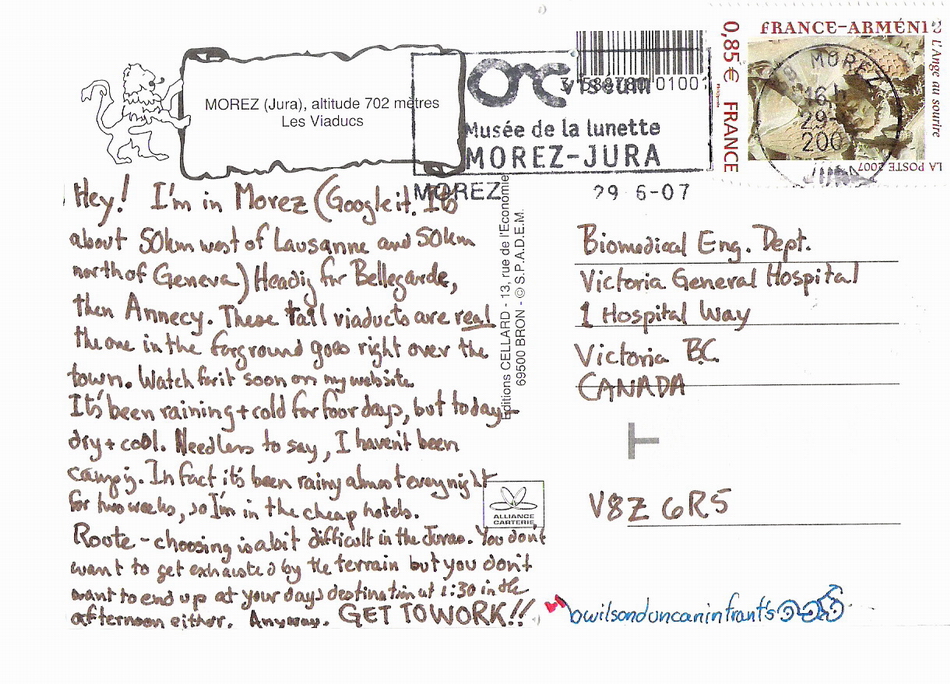 MOREZ (Jura), altitude 702 mètres
Les Viaducs
viseum
Musée de la lunette
MOREZ-JURA
MOREZ
29-6-07
0,85 € FRANCE
FRANCE-ARMÉNI
L'Ange au sourire
LA POSTE 2007
MOREZ
16H
29-
200
JURA
Hey! I'm in Morez (Google it. It's
about 50km west of Lausanne and 50km
north of Geneva) Headig for Bellegarde,
then Annecy. These tall viaducts are real
the one in the forground goes right over the
town. Watch for it soon on my website.
It's been raining + cold for four days, but today-
dry + cool. Needless to say, I haven't been
campig. In fact it's been rainy almost every night
for two weeks, so I'm in the cheap hotels.
Route-choosing is a bit difficult in the Juras. You don't
want to get exhausted by the terrain but you don't
want to end up at your days destination at 1:30 in the
afternoon either. Anyway. GET TO WORK!!
Editions CELLARD - 13, rue de l'Economie
69500 BRON - © S.P.A.D.E.M.
ALLIANCE
CARTERIE
Biomedical Eng. Dept.
Victoria General Hospital
1 Hospital Way
Victoria B.C.
CANADA
V8Z 6R5
bwilsonduncaninfrant's